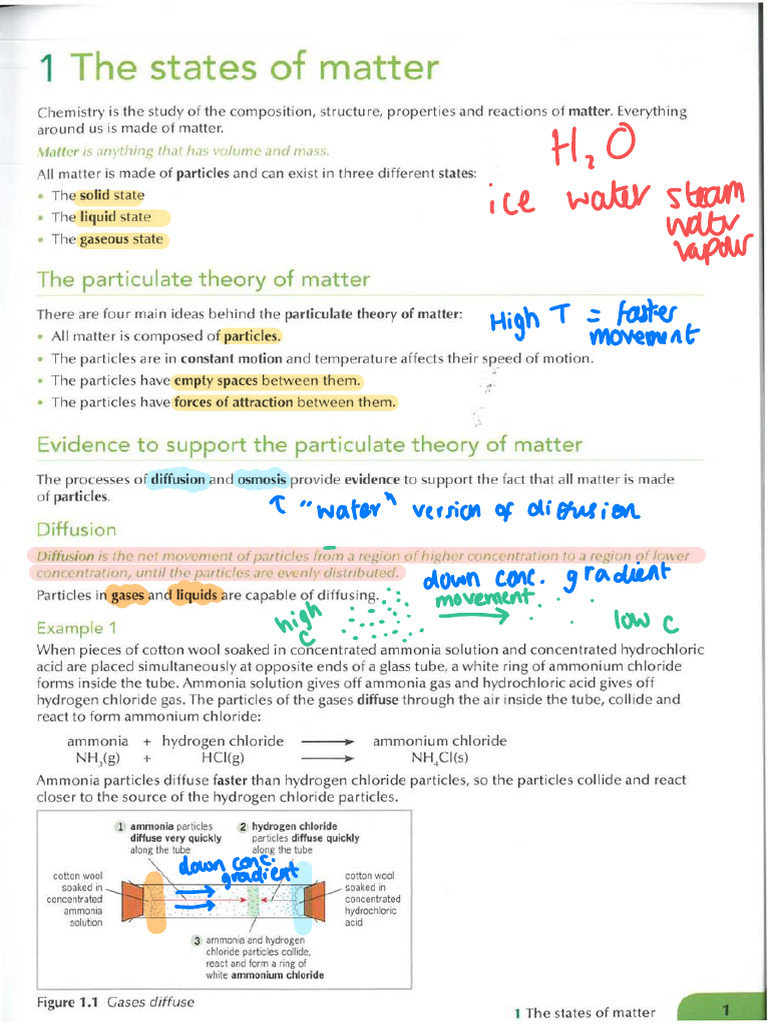 1 The states of matter
Chemistry is the study of the composition, structure, properties and reactions of matter. Everything
around us is made of matter.
Matter is anything that has volume and mass.
H₂O
All matter is made of particles and can exist in three different states:
• The solid state
ice water steam
• The liquid state
water
• The gaseous state
vapour
The particulate theory of matter
There are four main ideas behind the particulate theory of matter:
High T = faster
movement
• All matter is composed of particles.
• The particles are in constant motion and temperature affects their speed of motion.
• The particles have empty spaces between them.
• The particles have forces of attraction between them.
Evidence to support the particulate theory of matter
The processes of diffusion and osmosis provide evidence to support the fact that all matter is made
of particles.
↑ "water" version of diffusion
Diffusion
Diffusion is the net movement of particles from a region of higher concentration to a region of lower
concentration, until the particles are evenly distributed.
down conc. gradient
Particles in gases and liquids are capable of diffusing.
movement
high
c
low c
Example 1
When pieces of cotton wool soaked in concentrated ammonia solution and concentrated hydrochloric
acid are placed simultaneously at opposite ends of a glass tube, a white ring of ammonium chloride
forms inside the tube. Ammonia solution gives off ammonia gas and hydrochloric acid gives off
hydrogen chloride gas. The particles of the gases diffuse through the air inside the tube, collide and
react to form ammonium chloride:
ammonia + hydrogen chloride ⟶ ammonium chloride
NH₃(g) + HCl(g) ⟶ NH₄Cl(s)
Ammonia particles diffuse faster than hydrogen chloride particles, so the particles collide and react
closer to the source of the hydrogen chloride particles.
1 ammonia particles
diffuse very quickly
along the tube
2 hydrogen chloride
particles diffuse quickly
along the tube
down conc.
gradient
cotton wool
soaked in
concentrated
ammonia
solution
cotton wool
soaked in
concentrated
hydrochloric
acid
3 ammonia and hydrogen
chloride particles collide,
react and form a ring of
white ammonium chloride
Figure 1.1 Gases diffuse
1 The states of matter
1